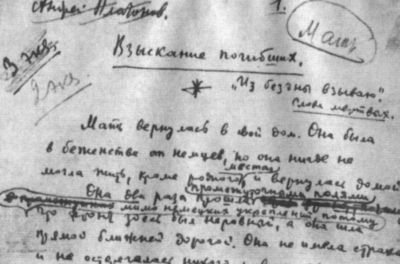 Андрей Платонов. 1.
3 экз
2 экз.
Взыскание погибших.
"Из бездны взываю."
Слова мертвых.
Мать вернулась в свой дом. Она была
в беженстве от немцев, но она нигде не
места,
могла жить, кроме родного и вернулась домой
промежуточными полями
Она два раза прошла
мимо немецких укреплений, потому
что фронт здесь был неровный, а она шла
прямой ближней дорогой. Она не имела страха
и не остерегалась никого